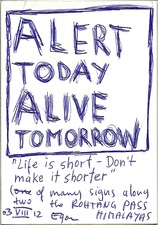 ALERT
TODAY
ALIVE
TOMORROW
"Life is short, - Don't
make it shorter"
(one of many signs along
two the ROHTANG PASS
03 VIII 12 Egon HIMALAYAS